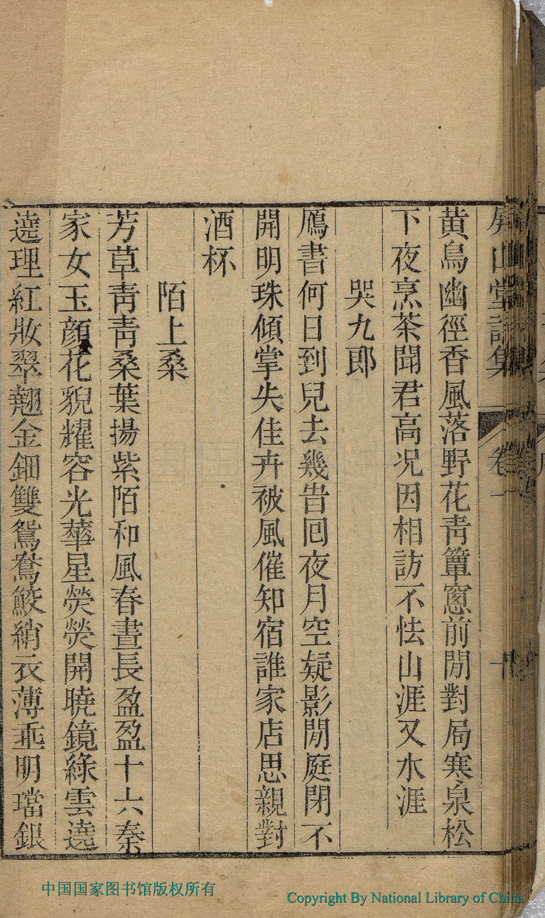 屏山堂詩集 卷一 十
黃鳥幽徑香風落野花靑簞窻前閒對局寒泉松
下夜烹茶聞君高况因相訪不怯山涯又水涯
哭九郎
鴈書何日到兒去幾昔回夜月空疑影閒庭閉不
開明珠傾掌失佳卉被風催知宿誰家店思親對
酒杯
陌上桑
芳草靑靑桑葉揚紫陌和風春晝長盈盈十六秦
家女玉顏花貌耀容光華星熒熒開曉鏡綠雲遶
遶理紅妝翠翹金鈿雙鴛鴦鮫綃衣薄垂明璫銀
中国国家图书馆版权所有
Copyright By National Library of China